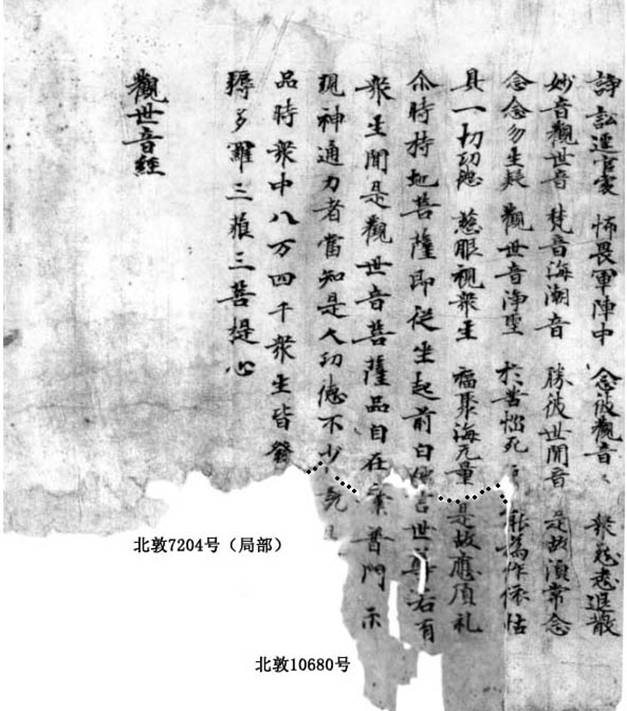 諍訟逕官處 怖畏軍陣中 念彼觀音〻 衆怨悉退散
妙音觀世音 梵音海潮音 勝彼世間音 是故湏常念
念念勿生疑 觀世音淨聖 於苦惱死 能為作依怙
具一切功德 慈眼視衆生 福聚海无量 是故應頂礼
尒時持地菩薩即從坐起前白佛言世尊若有
衆生聞是觀世音菩薩品自在業普門示
現神通力者當知是人功德不少
品時衆中八万四千衆生皆發
耨多羅三藐三菩提心
觀世音經
北敦7204号（局部）
北敦10680号